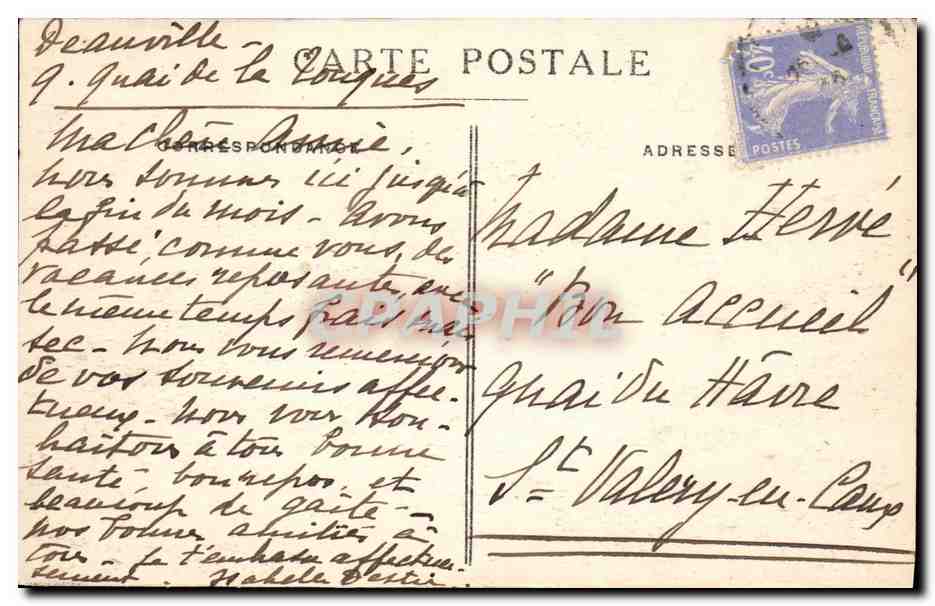 Deauville -
9. Quai de la Touques
CARTE POSTALE
40c
REPUBLIQUE FRANCAISE
POSTES
CORRESPONDANCE
ADRESSE
Ma chère Annie,
nous sommes ici jusqu'à
la fin du mois - avons
passé, comme vous, des
vacances reposantes, avec
le même temps frais mais
sec - Nous vous remercions
de vos souvenirs affec-
tueux - Nous vous sou-
haitons à tous bonne
santé, bon repos, et
beaucoup de gaîté -
nos bonnes amitiés à
tous Je t'embrasse affectueu-
sement. Isabelle
Madame Hervé
"Bon Accueil"
Quai du Hâvre
St Valery-en-Caux
CPAPHIL